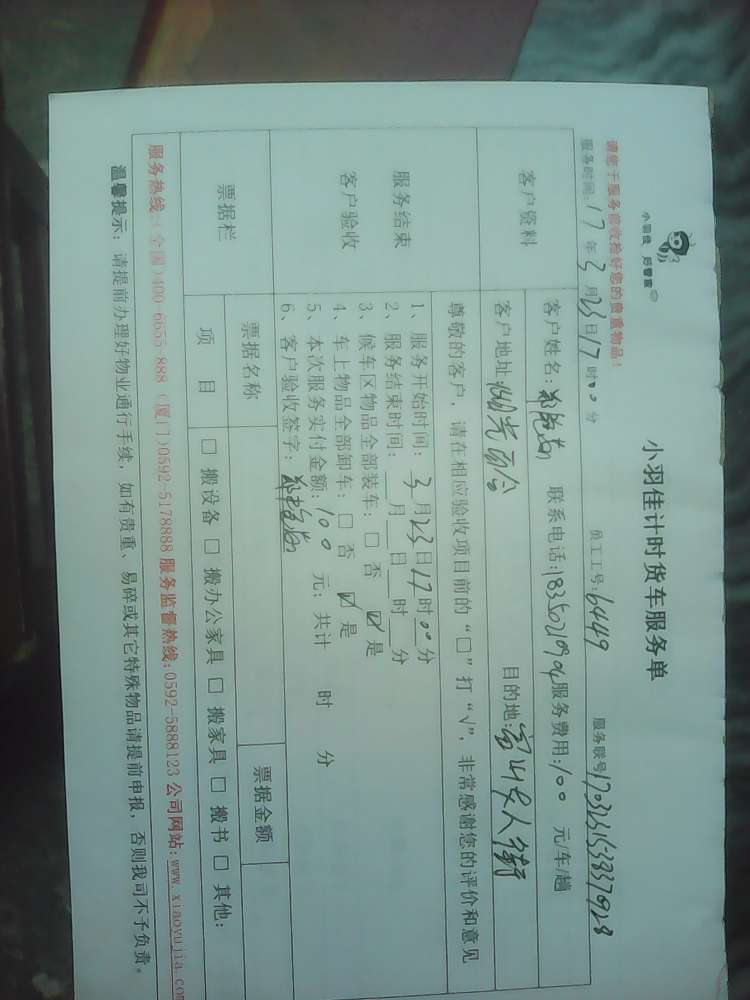 小羽佳计时货车服务单
小羽佳 历春盈
请您于服务前收捡好您的贵重物品！
员工工号:6449 服务联号
服务时间:17年3月23日17时00分
客户资料
客户姓名: 联系电话: 服务费用:100元/车/趟
客户地址: 目的地:富山 女人街
尊敬的客户，请在相应验收项目前的“□”打“√”，非常感谢您的评价和意见
服务结束
客户验收
1、服务开始时间：3月23日17时00分
2、服务结束时间：__月__日__时__分
3、候车区物品全部装车：□ 否 ☑ 是
4、车上物品全部卸车：□ 否 ☑ 是
5、本次服务实付金额:100 元；共计 时 分
6、客户验收签字：
票据栏
票据名称 票据金额
项 目 □ 搬设备 □ 搬办公家具 □ 搬家具 □ 搬书 □ 其他:
服务热线:(全国)400-6655-888 (厦门)0592-5178888 服务监督热线:0592-5888123 公司网站:www.xiaoyujia.com
温馨提示：请提前办理好物业通行手续，如有贵重、易碎或其它特殊物品请提前申报，否则我司不予负责。